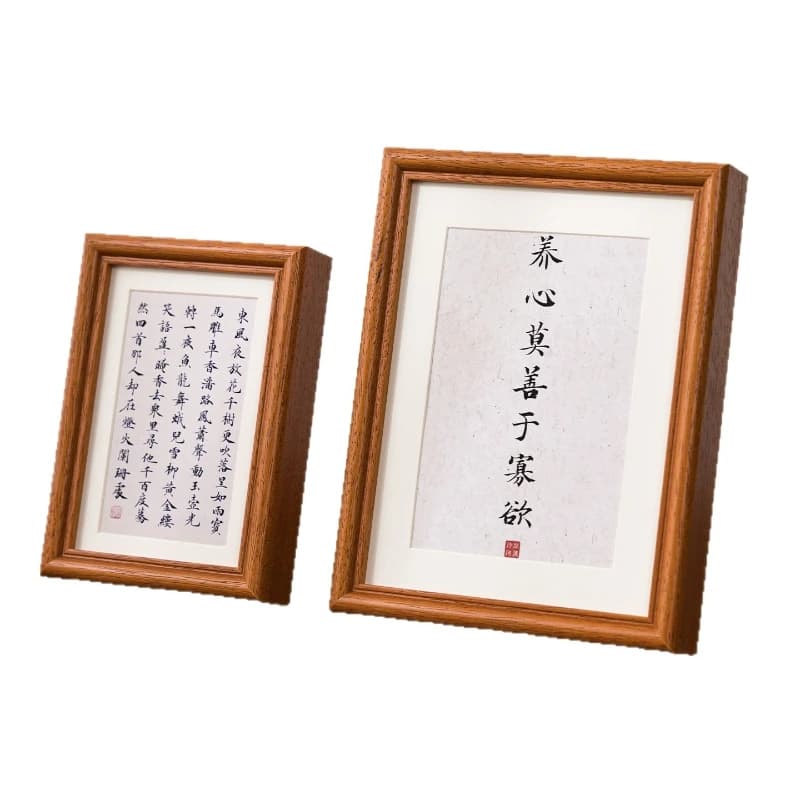 東風夜放花千樹更吹落星如雨寶
馬雕車香滿路鳳簫聲動玉壺光
轉一夜魚龍舞蛾兒雪柳黃金縷
笑語盈〻暗香去衆里尋他千百度驀
然回首那人却在燈火闌珊處
养心莫善于寡欲